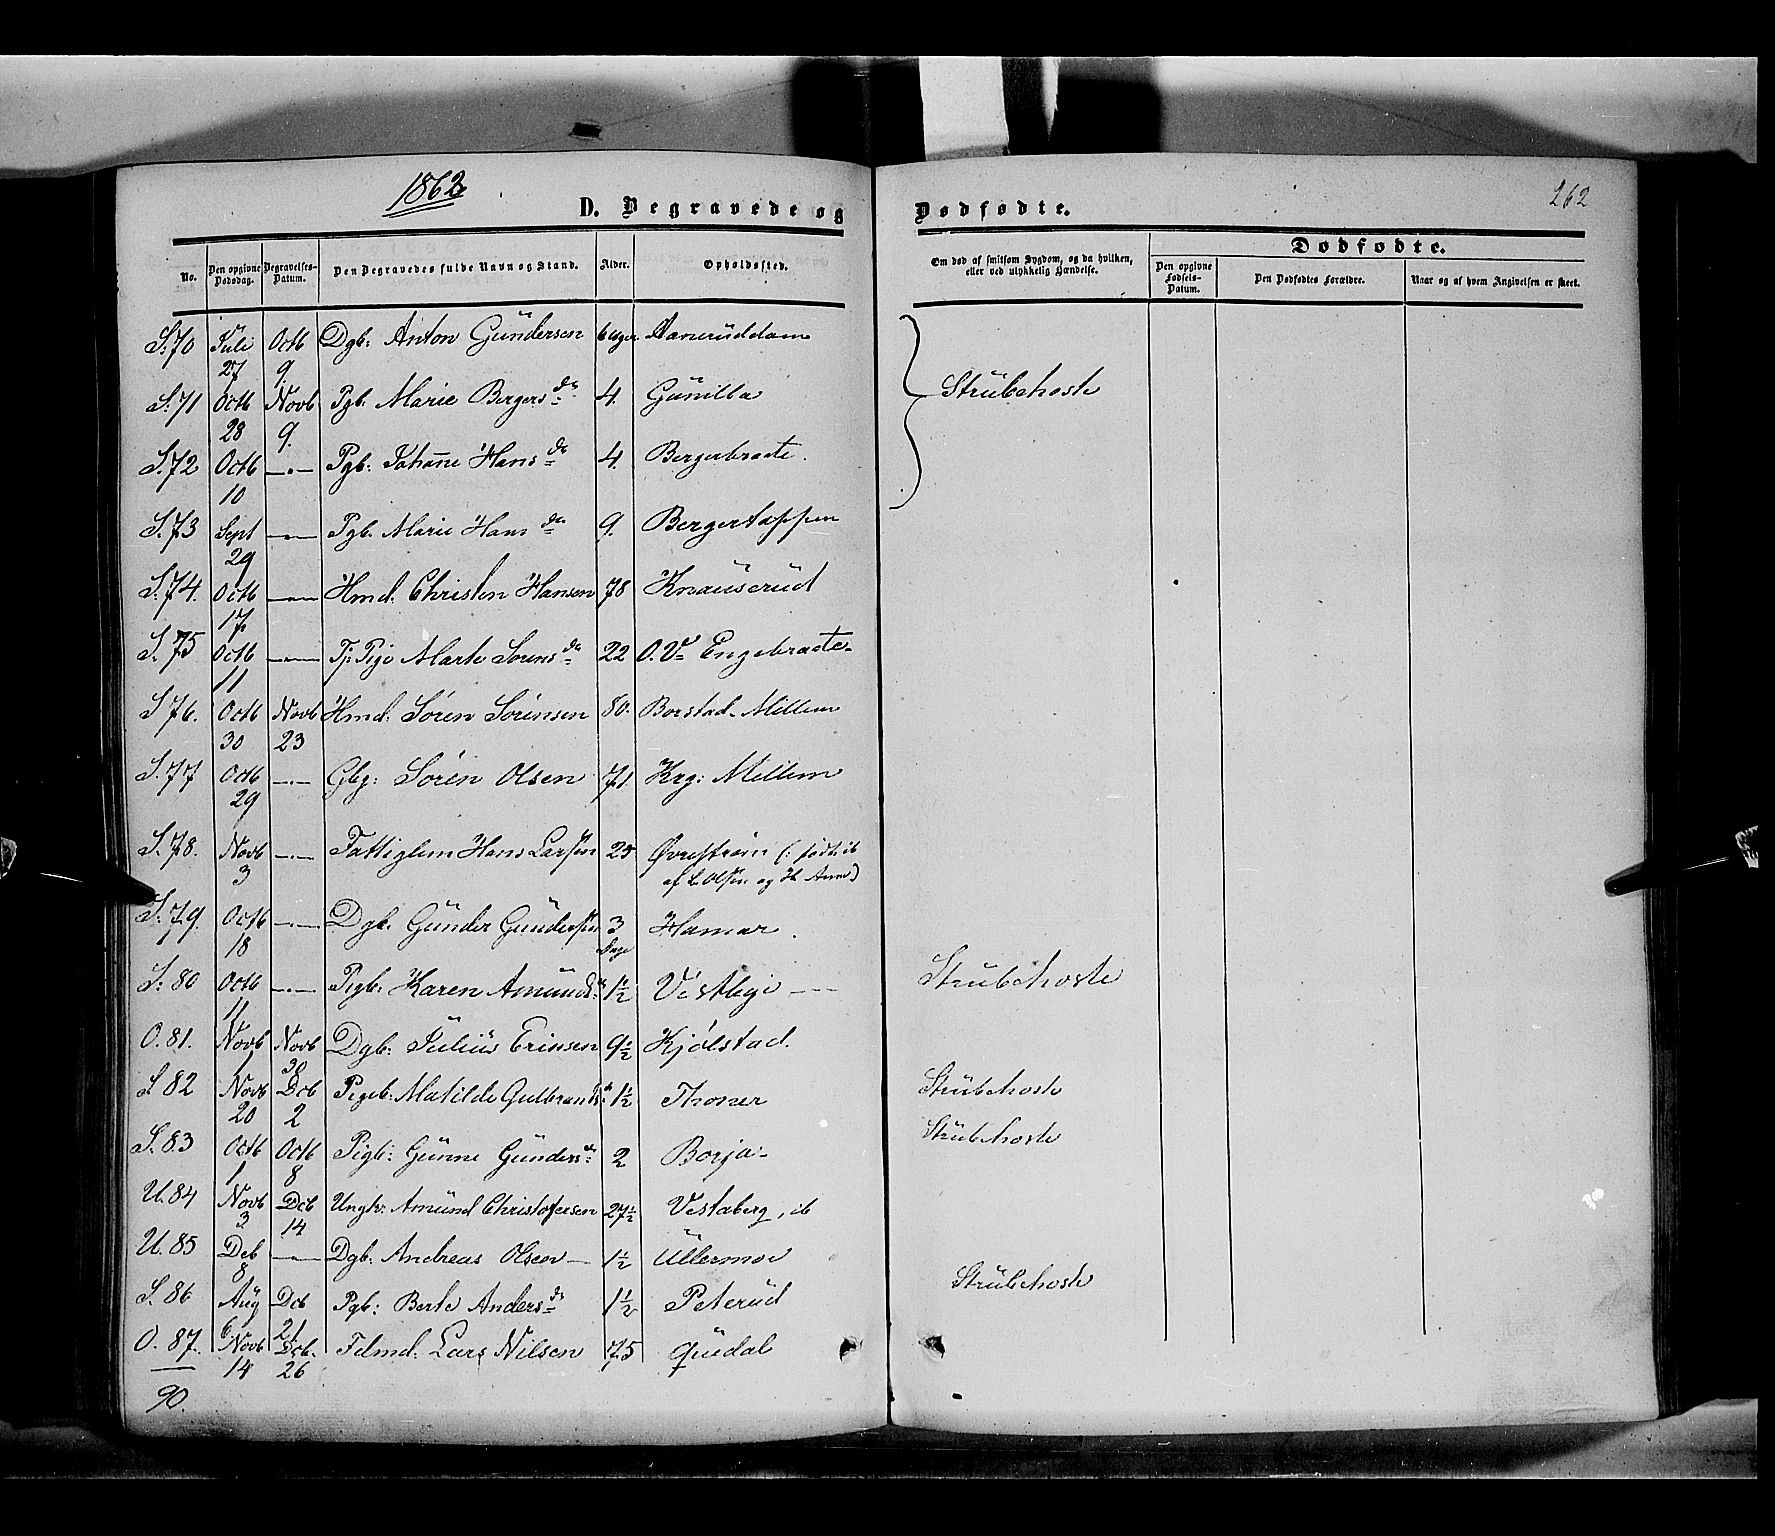 1862
D. Begravede og Dødfødte.
262
No. Den opgivne Dødsdag. Begravelses-Datum. Den Begravedes fulde Navn og Stand. Alder. Opholdssted. Om død af smitsom Sygdom, og da hvilken, eller ved ulykkelig Hændelse. Dødfødte.
Den opgivne Fødsels-Datum. Den Dødfødtes Forældre. Naar og af hvem Angivelsen er skeet.
S. 70 Juli 27 Octb 9. Dgb: Anton Gundersen 6 Uger
S. 71 Octb 28 Novb 9. Pgb: Marie Bergersdr 4. Gunilba Strubehoste
S. 72 Octb 10 —"— Pgb: Johanne Hansdr 4. Bergerbraate.
S. 73 Sept 29 —"— Pgb. Marie Hansdr 9. Bergertappen
S. 74. Octb 17. —"— Hmd. Christen Hansen 78 Knauserud
S. 75 Octb 11 —"— Tj: Pige Marte Sørensdr 22 O. V. Engebraate
S. 76. Octb 30 Novb 23 Hmd. Søren Sørensen 80. Borstad Mellem
S. 77 Octb 29 —"— Gbg: Søren Olsen 71. Krg: Mellem
S. 78. Novb 3 —"— Fattiglem Hans Larssen 25 Øvrestrøm
af L. Olsen og
S. 79. Octb 18 —"— Dgb. Gunder Gunderssen 3 Dage Hamar.
S. 80 Octb 11 —"— Pigb: Karen Amunds. 1½ Vestbye Strubehoste
O. 81. Novb 1 Novb 30 Dgb: Julius Erinsen 9½ Kjølstad.
S. 82 Novb 20 Dcb 2 Pigeb: Matilde Gulbrands. 1½ Thoner Strubehoste
S. 83 Octb 1 Octb 8 Pigb: Gunne Gundersdr 2 Borja Strubehoste
U. 84 Novb 3 Dcb 14 Ungkr. Amund Christofersen 27½ Vestaberg, ib
U. 85 Dcb 8 —"— Dgb: Andreas Olsen 1½ Ullermoe
S. 86 Aug 6 Dcb 21 Pgb: Berte Andersdr 1½ Peterud Strubehoste
O. 87. Novb 14 Dcb. 26 Fdmd. Lars Nilsen 75 Qusdal
90.